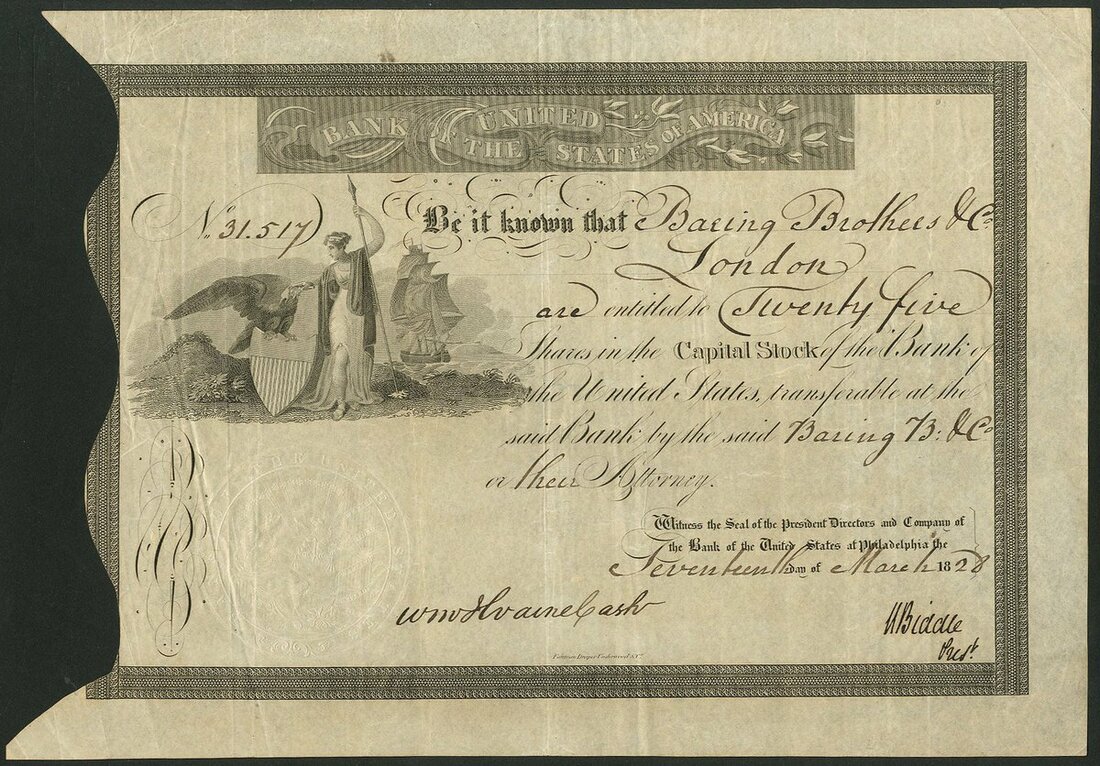 BANK OF THE UNITED STATES OF AMERICA
No. 31.517
Be it known that Baring Brothers & Co.
London
are entitled to Twenty five
Shares in the Capital Stock of the Bank of
the United States, transferable at the
said Bank by the said Baring B: & Co
or their Attorney.
Witness the Seal of the President Directors and Company of
the Bank of the United States at Philadelphia the
Seventeenth day of March 1828
Wm McIlvaine Cashr
N Biddle
Prest.
Fairman Draper Underwood & Co.